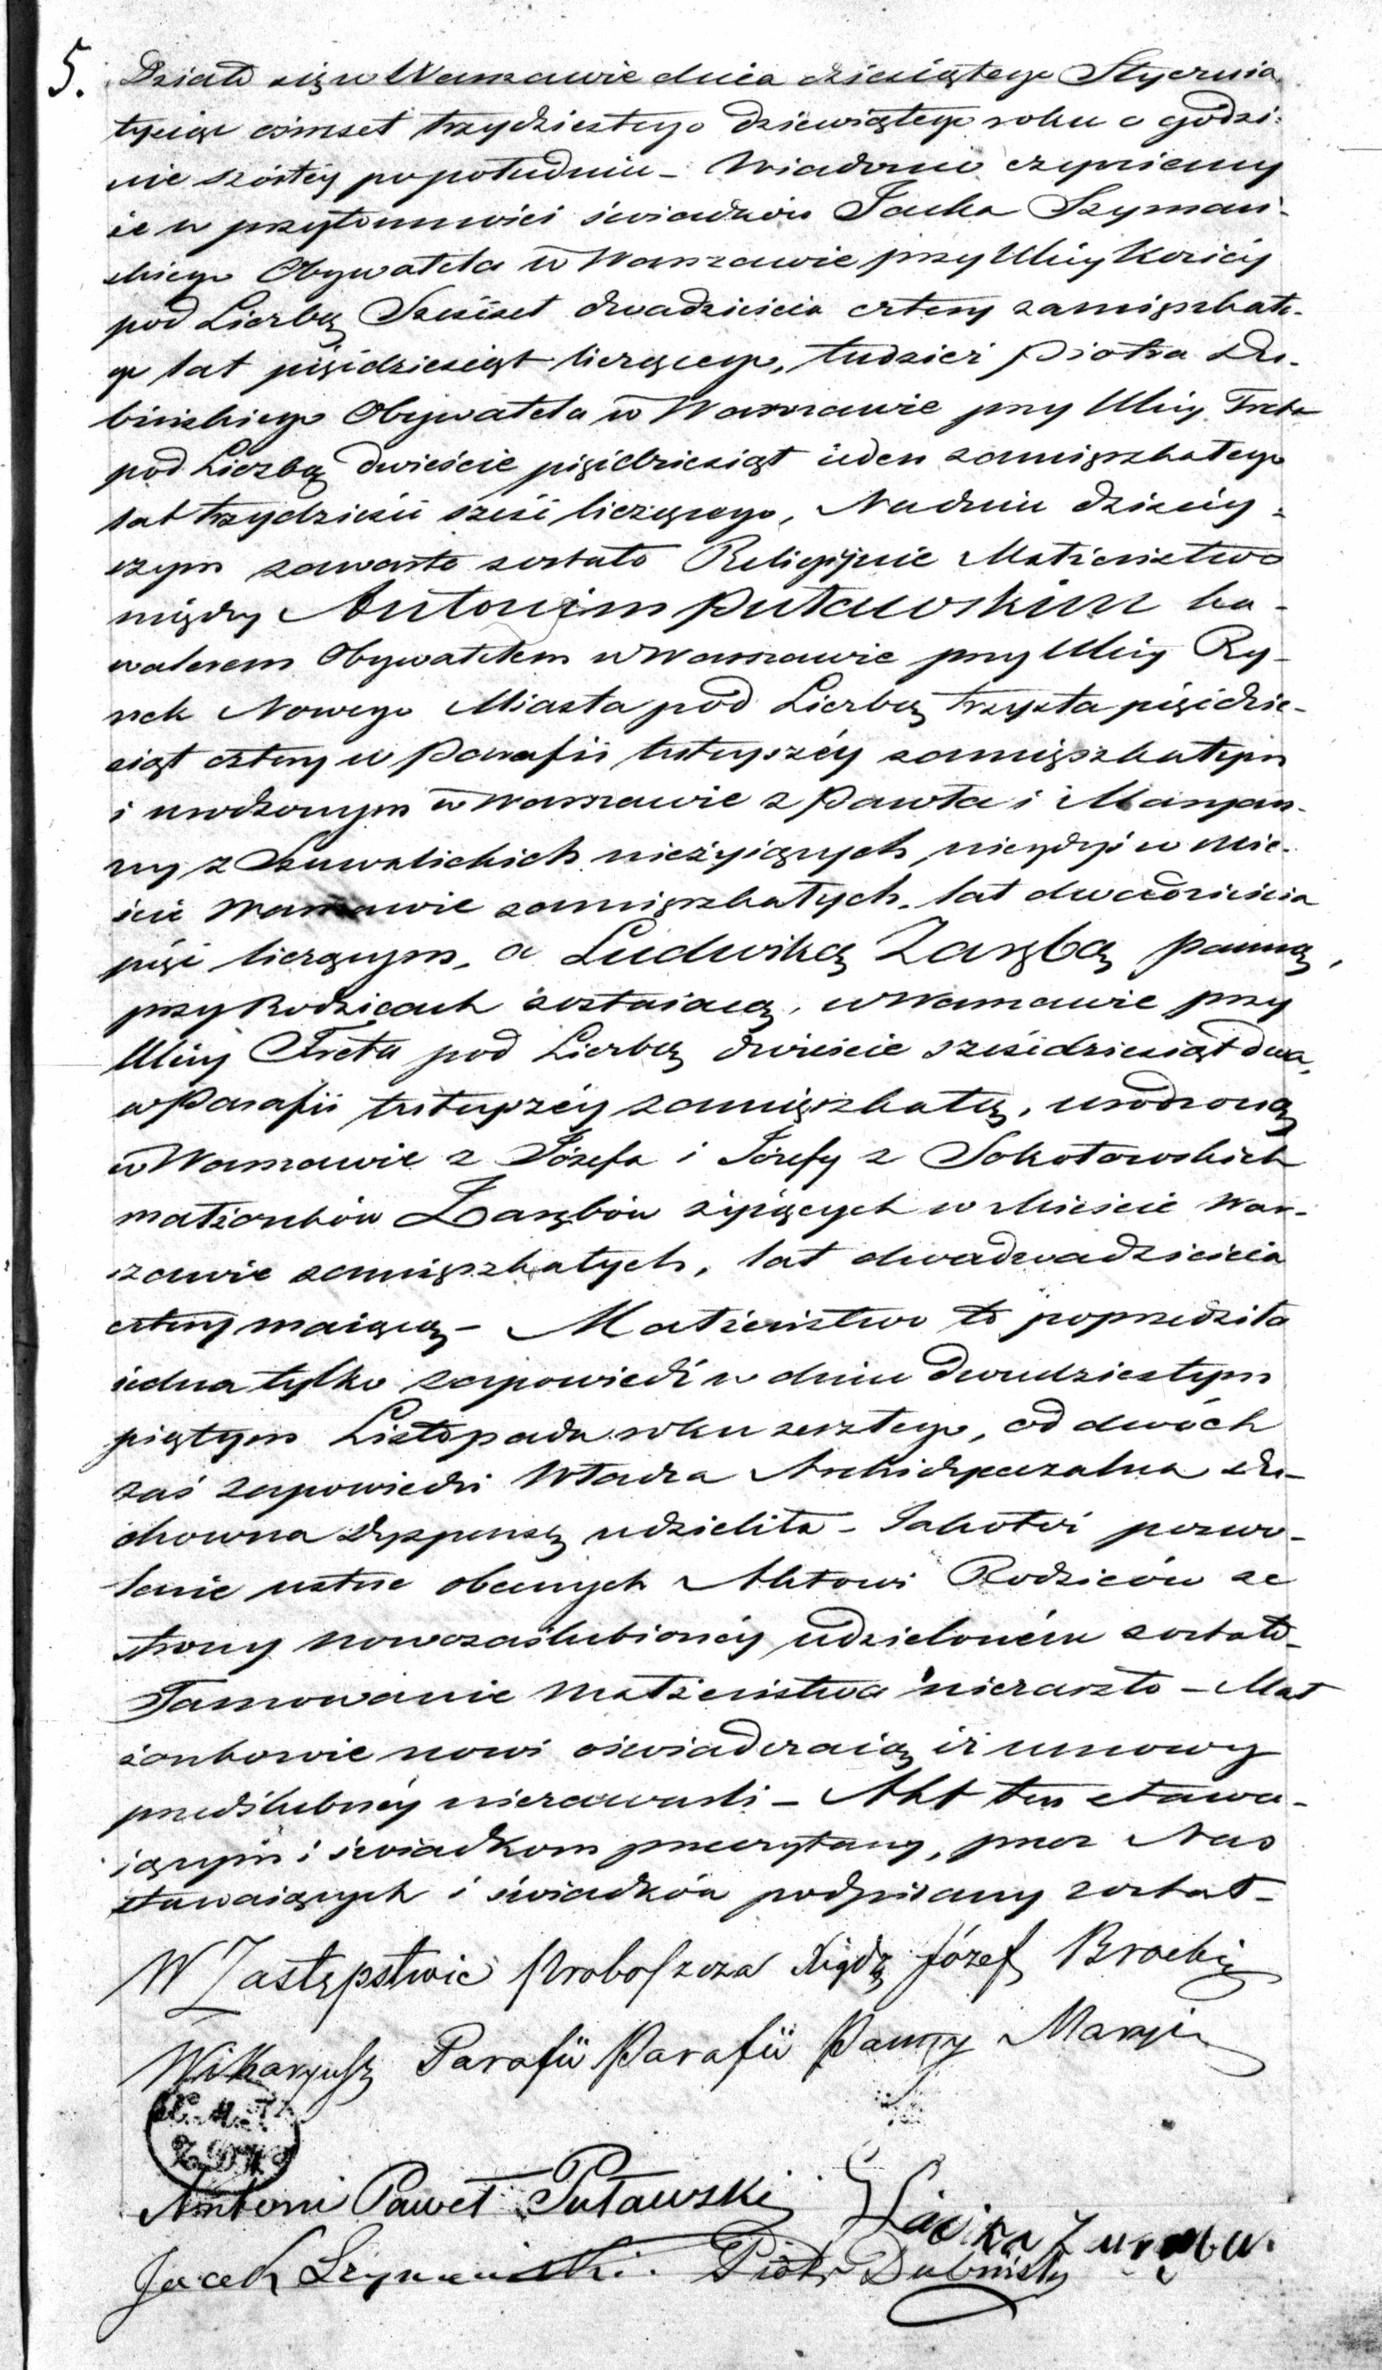 5. Działo się w Warszawie dnia dziesiątego Stycznia
tysiąc ośmset trzydziestego dziewiątego roku o godzi-
nie szóstéy popołudniu - Wiadomo czyniemy
iż w przytomności świadków Jacka Szymań-
skiego Obywatela w Warszawie przy Ulicy Koziéy
pod Liczbą Sześćset dwadzieścia cztery zamięszkałe-
go lat pięćdziesiąt liczącego, tudzież Piotra Du-
bińskiego Obywatela w Warszawie przy Ulicy Freta
pod Liczbą dwieście pięćdziesiąt ieden zamięszkałego
lat trzydzieści sześć liczącego, Na dniu dzisiéy-
szym zawarte zostało Religijnie Małżeństwo
między Antonim Puławskim ka-
walerem Obywatelem w Warszawie przy Ulicy Ry-
nek Nowego Miasta pod Liczbą trzysta pięćdzie-
siąt cztery w Parafii tutejszéy zamięszkałym
i urodzonym w Warszawie z Pawła i Maryan-
ny z Suwalickich nieżyiących, niegdyś w Mie-
ście Warszawie zamięszkałych, lat dwadzieścia
pięć liczącym, a Ludwiką Zarębą panną,
przy Rodzicach zostaiącą, w Warszawie przy
Ulicy Freta pod Liczbą dwieście sześćdziesiąt dwa,
w Parafii tutejszéy zamięszkałą, urodzoną
w Warszawie z Józefa i Józefy z Sokołowskich
małżonków Zarębów żyiących w Mieście War-
szawie zamięszkałych, lat dwadwadzieścia
cztery maiącą - Małżeństwo to poprzedziła
iedna tylko zapowiedź w dniu dwudziestym
piątym Listopada roku zeszłego, od dwóch
zaś zapowiedzi Władza Archidyecezalna du-
chowna dyspensę udzieliła - Jakotéż pozwo-
lenie ustne obecnych Aktowi Rodziców ze
strony nowozaślubionéy udzieloném zostało -
Tamowanie małżeństwa niezaszło - Mał
żonkowie nowi oświadczaią iż umowy
przedślubnéy niezawarli - Akt ten stawa-
iącym i świadkom przeczytany, przez Nas
stawaiących i świadków podpisany został -
W Zastępstwie Proboszcza Xiądz Józef Brocki
Wikaryusz Parafii Parafii Panny Maryi
Antoni Paweł Puławski
Jacek Szymański. Piotr Dubiński